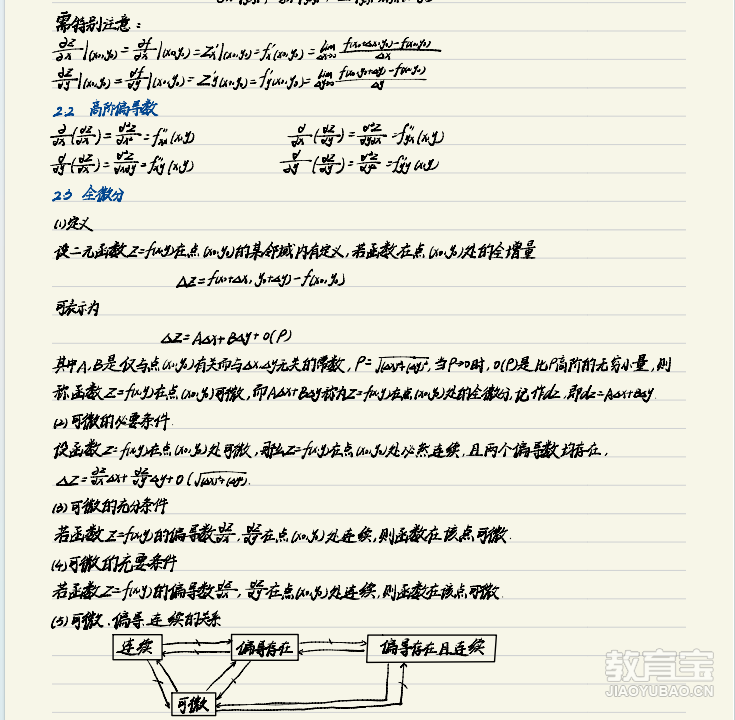 需特别注意:
∂z/∂x|(x₀,y₀)=∂f/∂x|(x₀,y₀)=Z'x|(x₀,y₀)=f'x(x₀,y₀)=lim Δx→0 f(x₀+Δx,y₀)-f(x₀,y₀)/Δx
∂z/∂y|(x₀,y₀)=∂f/∂y|(x₀,y₀)=Z'y(x₀,y₀)=f'y(x₀,y₀)=lim Δy→0 f(x₀,y₀+Δy)-f(x₀,y₀)/Δy
2.2 高阶偏导数
∂/∂x(∂z/∂x)=∂²z/∂x²=f''xx(x,y) ∂/∂x(∂z/∂y)=∂²z/∂y∂x=f''yx(x,y)
∂/∂y(∂z/∂x)=∂²z/∂x∂y=f''xy(x,y) ∂/∂y(∂z/∂y)=∂²z/∂y²=f''yy(x,y)
2.3 全微分
(1)定义
设二元函数Z=f(x,y)在点(x₀,y₀)的某邻域内有定义,若函数在点(x₀,y₀)处的全增量
ΔZ=f(x₀+Δx,y₀+Δy)-f(x₀,y₀)
可表示为
ΔZ=AΔx+BΔy+o(ρ)
其中A,B是仅与点(x₀,y₀)有关而与Δx,Δy无关的常数,ρ=√(Δx)²+(Δy)²,当ρ→0时,o(ρ)是比ρ高阶的无穷小量,则
称函数Z=f(x,y)在点(x₀,y₀)可微,而AΔx+BΔy称为Z=f(x,y)在点(x₀,y₀)处的全微分,记作dz,即dz=AΔx+BΔy
(2)可微的必要条件.
设函数Z=f(x,y)在点(x₀,y₀)处可微,那么Z=f(x,y)在点(x₀,y₀)处必然连续,且两个偏导数均存在,
ΔZ=∂z/∂xΔx+∂z/∂yΔy+o(√(Δx)²+(Δy)²).
(3)可微的充分条件
若函数Z=f(x,y)的偏导数∂z/∂x,∂z/∂y在点(x₀,y₀)处连续,则函数在该点可微.
(4)可微的充要条件
若函数Z=f(x,y)的偏导数∂z/∂x,∂z/∂y在点(x₀,y₀)处连续,则函数在该点可微
(5)可微、偏导、连续的关系
连续 偏导存在 偏导存在且连续
可微
教育宝
JIAOYUBAO.CN